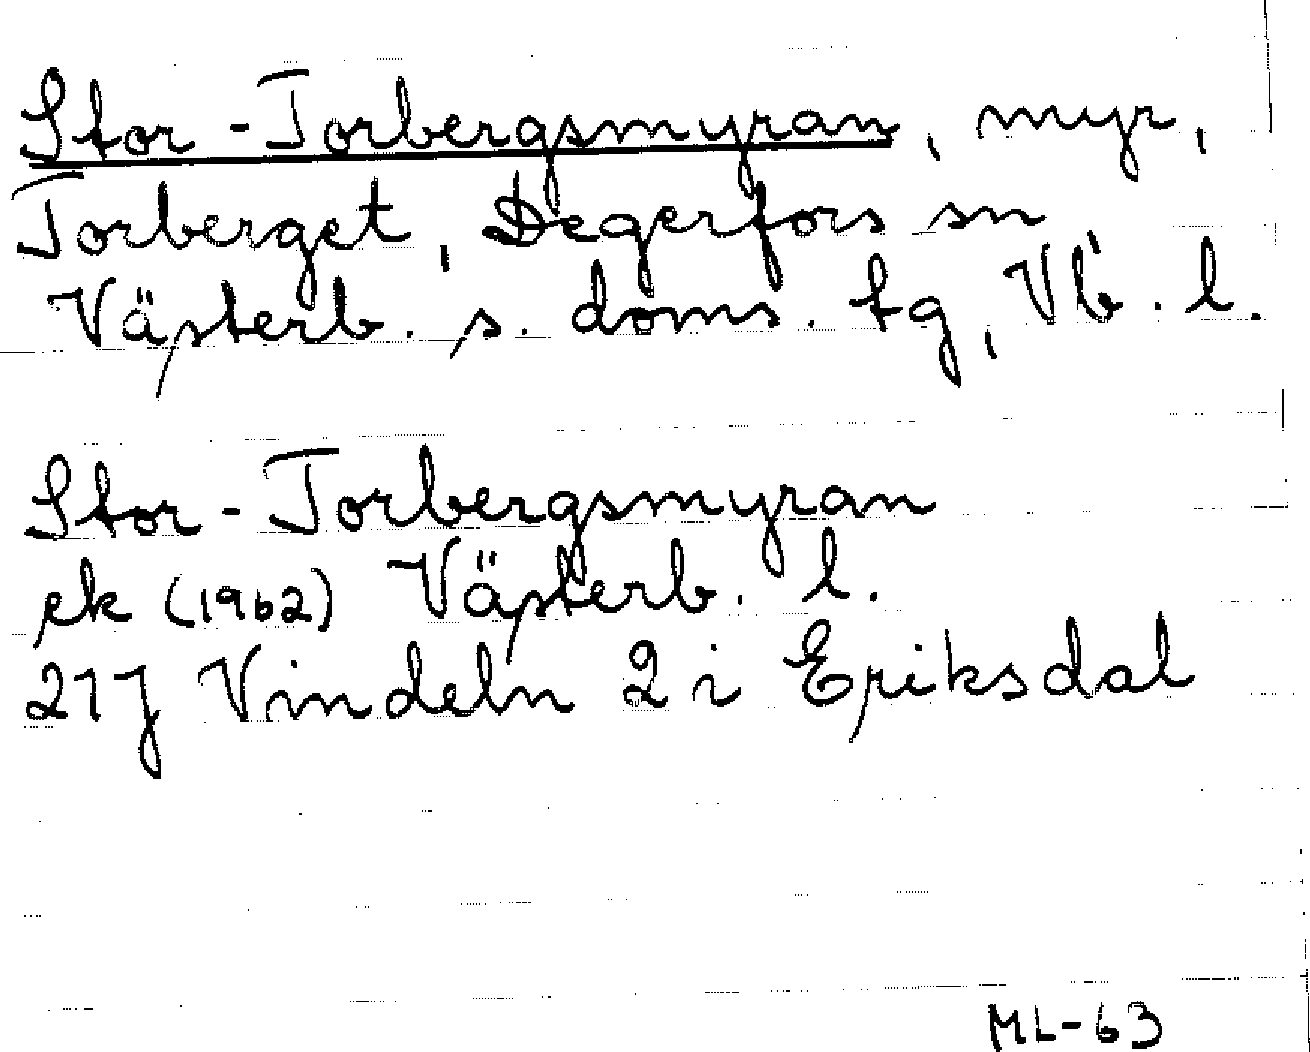 Stor-Torbergsmyran, myr,
Torberget, Degerfors sn
Västerb. s. doms. tg, Vb. l.
Stor-Torbergsmyran
ek (1962) Västerb. l.
21J Vindeln 2 i Eriksdal
ML-63